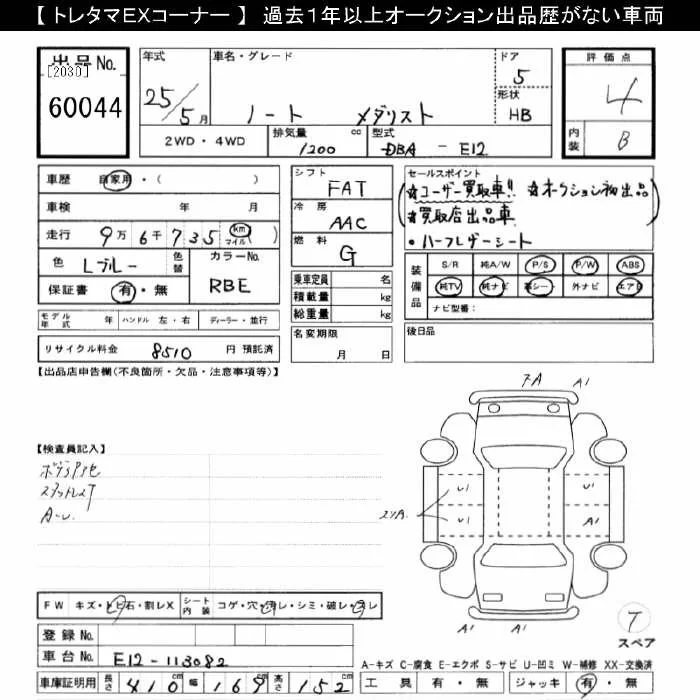 【 トレタマEXコーナー 】 過去1年以上オークション出品歴がない車両
出品No.
[2030]
60044
年式
25/5月
車名・グレード
ノート メダリスト
ドア
5
形状
HB
2WD・4WD
排気量
1200 cc
型式
DBA - E12
評価点
4
内装
B
車歴 自家用・( )
車検 年 月
走行 9万6千735 (km マイル)
色 Lブルー 色替
カラーNo.
RBE
保証書 有・無
シフト
FAT
冷房
AAC
燃料
G
セールスポイント
(☆ユーザー買取車!! ☆オークション初出品
☆買取店出品車 )
・ハーフレザーシート
装備品
S/R 純A/W P/S P/W ABS
純TV 純ナビ 革シート 外ナビ エアB
ナビ型番:
乗車定員 名
積載量 kg
総重量 kg
モデル年式 年 ハンドル 左・右 ディーラー・並行
リサイクル料金 8510 円 預託済
名変期限
月 日
後日品
【出品店申告欄(不良箇所・欠品・注意事項等)】
【検査員記入】
A-U
7A A1
U1 U1
U1 A1
A1 A1
FW キズ・トビ石・割レX
シート内装 コゲ・穴・汚レ・シミ・破レ・スレ
登録No.
車台No. E12-113082
車庫証明用 長さ 410 幅 169 高さ 152
T
スペア
A-キズ C-腐食 E-エクボ S-サビ U-凹ミ W-補修 XX-交換済
工具 有・無 ジャッキ 有・無